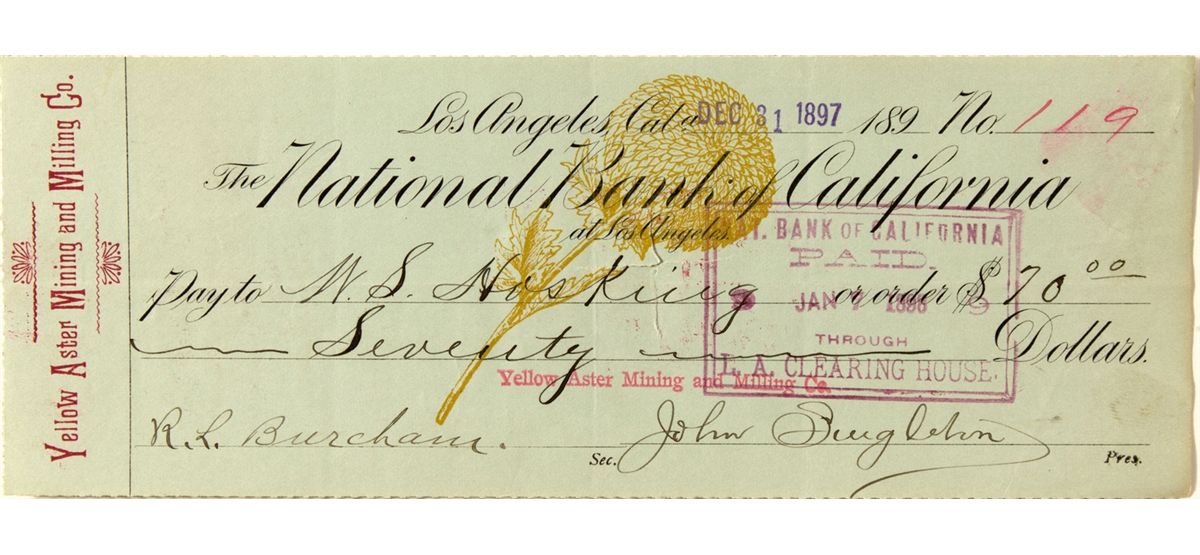 Yellow Aster Mining and Milling Co.
Los Angeles, Cala DEC 31 1897 189 No. 119
The National Bank of California
at Los Angeles.
Pay to W. S. Hosking or order $ 70 00
Seventy Dollars.
T. BANK OF CALIFORNIA
PAID
JAN 7
THROUGH
L. A. CLEARING HOUSE.
Yellow Aster Mining and Milling Co.
R. L. Burcham. Sec. John Singleton Pres.